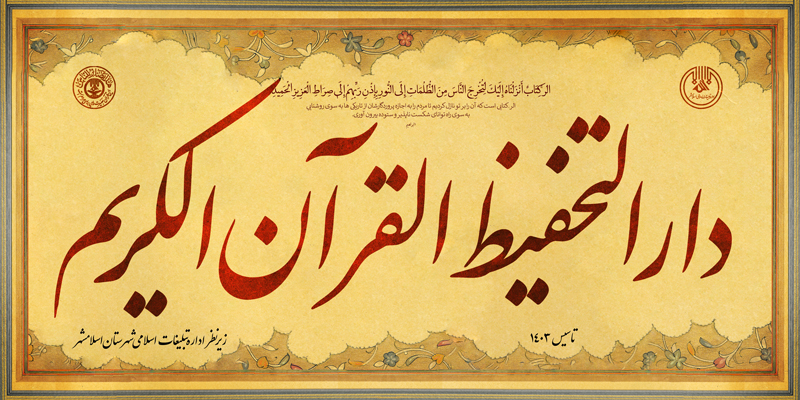 الر كِتَابٌ أَنزَلْنَاهُ إِلَيْكَ لِتُخْرِجَ النَّاسَ مِنَ الظُّلُمَاتِ إِلَى النُّورِ بِإِذْنِ رَبِّهِمْ إِلَى صِرَاطِ الْعَزِيزِ الْحَمِيدِ
الر کتابی است که آن را بر تو نازل کردیم تا مردم را به اجازه پروردگارشان از تاریکی ها به سوی روشنایی
به سوی راه توانای شکست ناپذیر و ستوده بیرون آوری.
دار التحفیظ القرآن الکریم
تاسیس ۱۴۰۳
زیر نظر اداره تبلیغات اسلامی شهرستان اسلامشهر